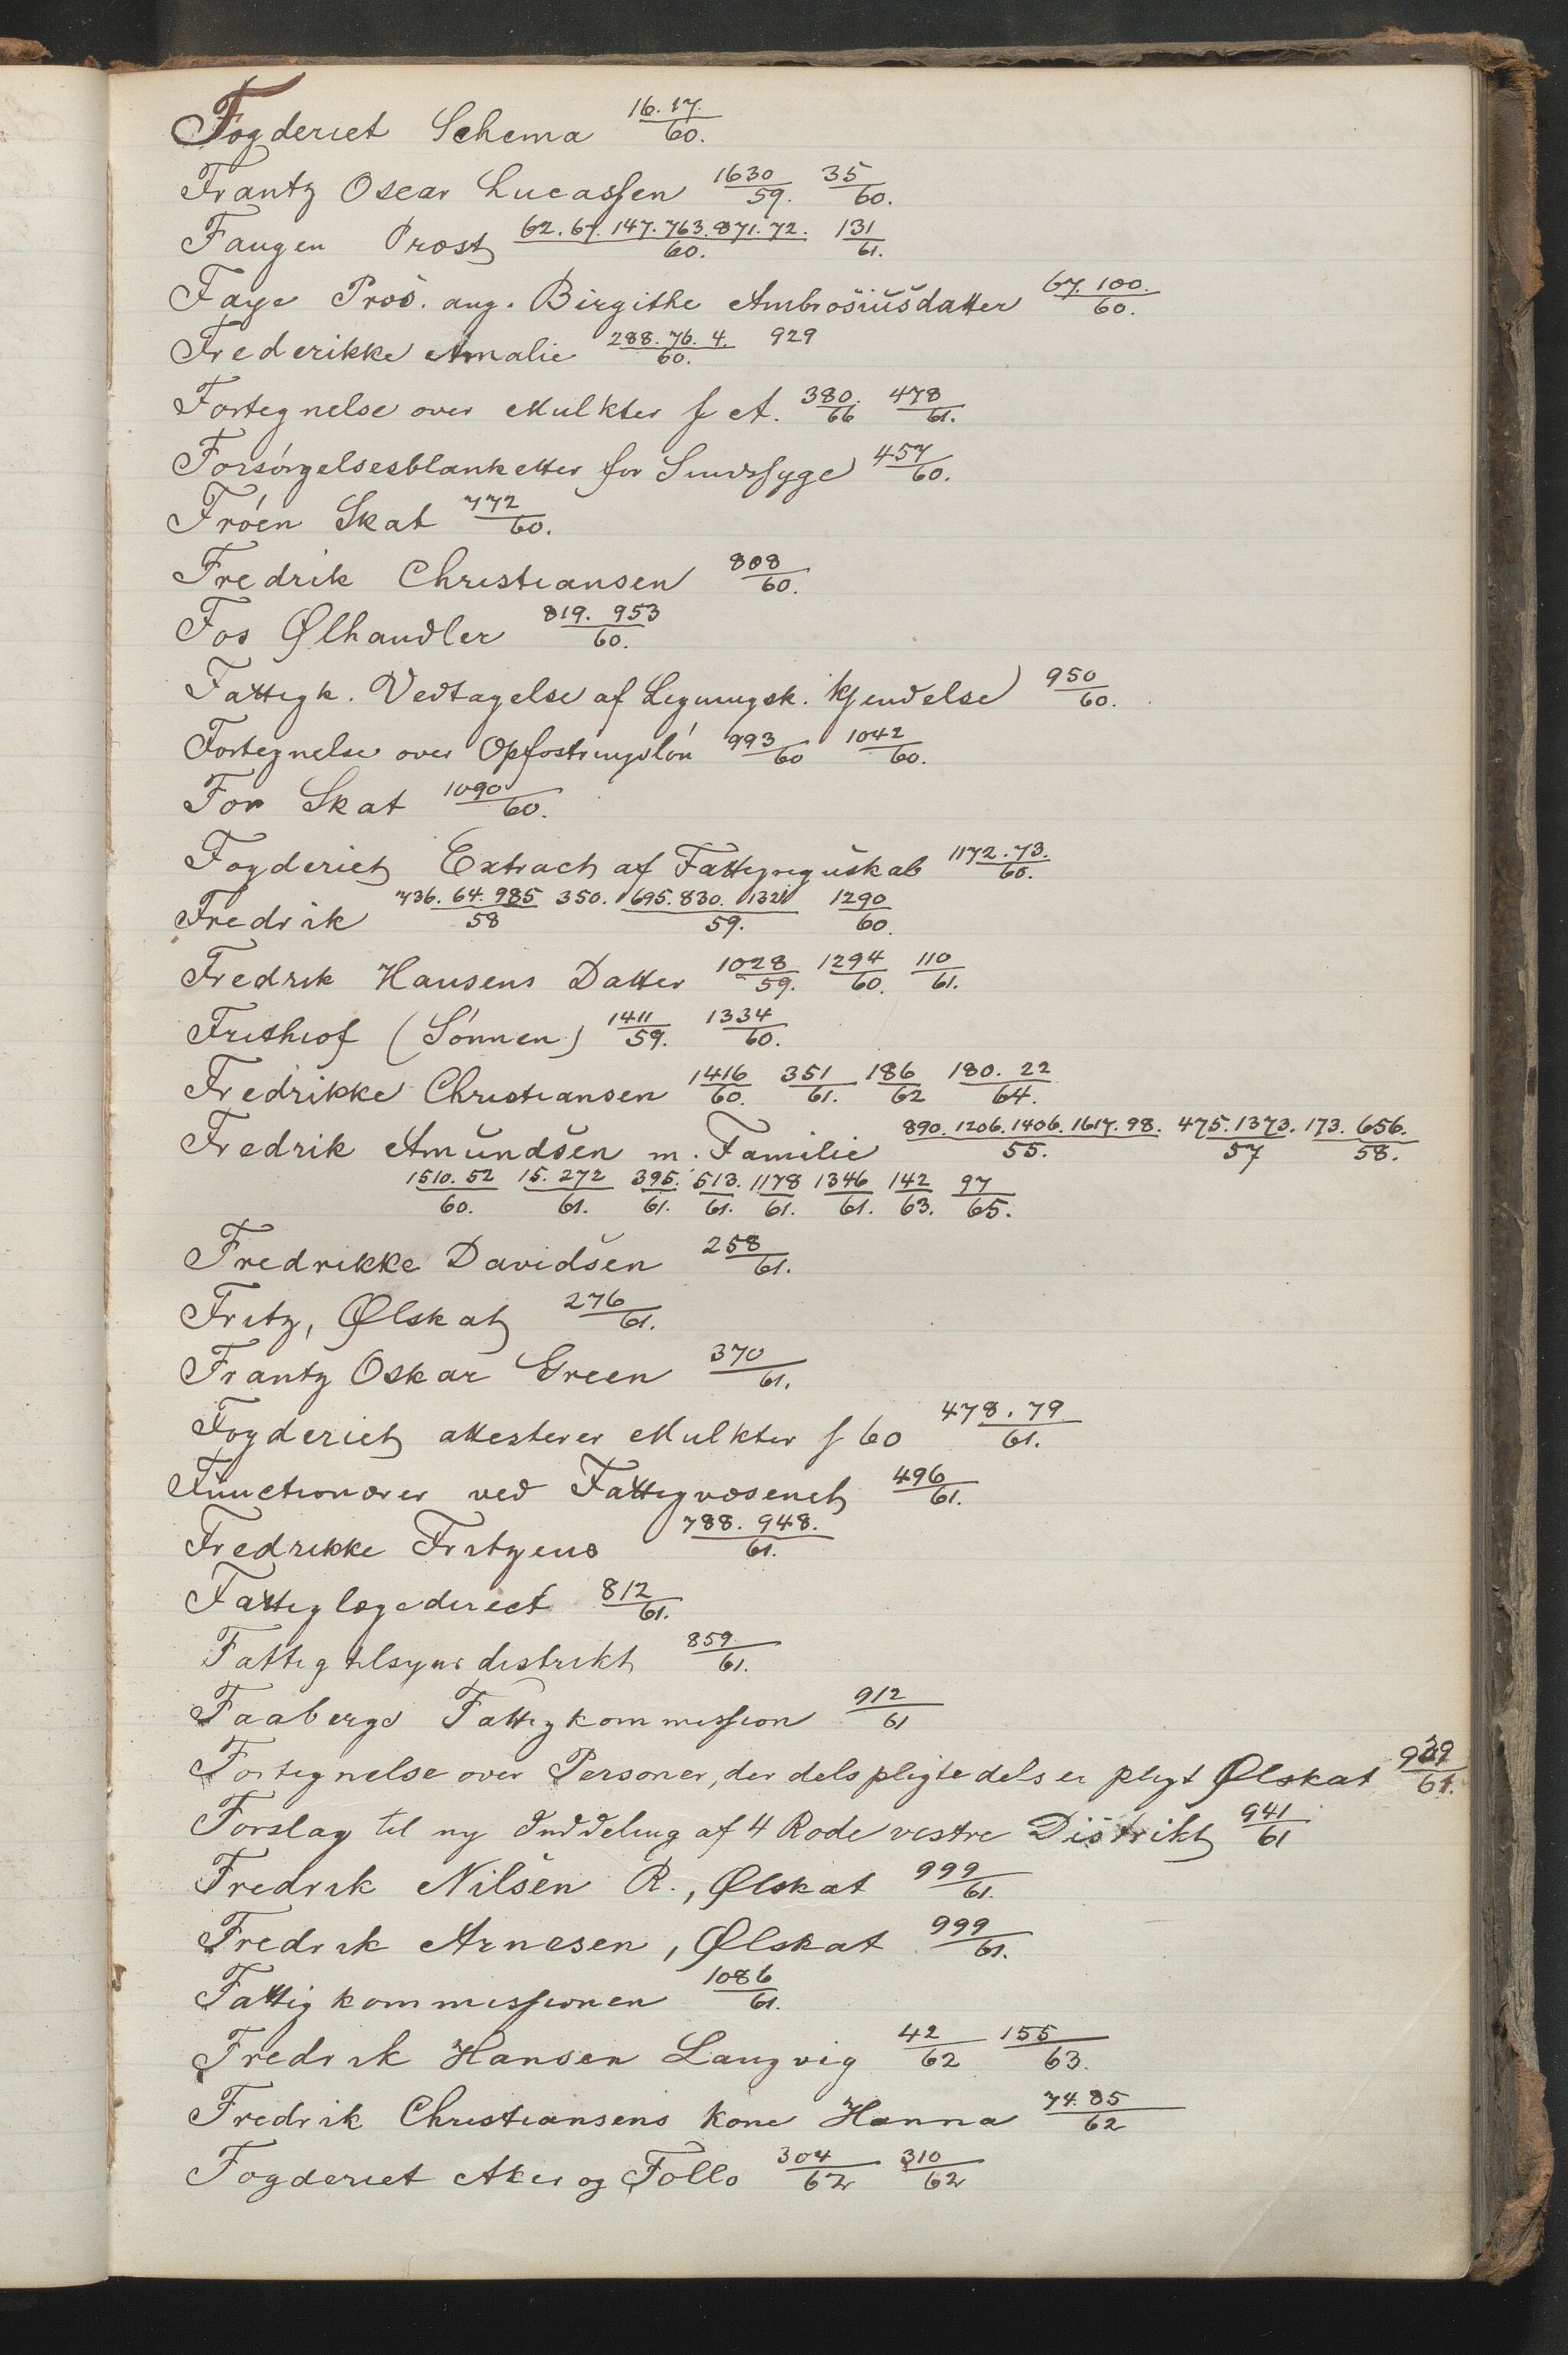 Fogderiet Schema 16.17./60.
Frantz Oscar Lucassen 1630/59. 35/60.
Faugen Prost 62.67.147.763.871.72./60. 131/61.
Faye Pros. ang. Birgithe Ambrosiusdatter 67.100./60.
Frederikke Amalie 288.76.4./60. 929
Fortegnelse over Mulkter f A. 380./66 478/61.
Forsörgelsesblanketter for Sindssyge 457/60.
Fróen Skat 772/60.
Fredrik Christiansen 808/60.
Fos Ølhandler 819. 953/60.
Fattigk. Vedtagelse af Ligningsk. Kjendelse 950/60.
Fortegnelse over Opfostringslön 993/60 1042/60.
For Skat 1090/60.
Fogderiet Extract af Fattigregnskab 1172.73./60.
Fredrik 736.64.985/58 350. 695.830.1321/59. 1290/60.
Fredrik Hansens Datter 1028/59. 1294/60. 110/61.
Frithiof (Sönnen) 1411/59. 1334/60.
Fredrikke Christiansen 1416/60. 351/61. 186/62 180. 22/64.
Fredrik Amundsen m. Familie 890.1206.1406.1617.98./55. 475.1373./57 173.656./58.
1510.52/60. 15.272/61. 395./61. 513./61. 1178/61. 1346/61. 142/63. 97/65.
Fredrikke Davidsen 258/61.
Fritz, Ølskat 276/61.
Frantz Oskar Green 370/61.
Fogderiet attesterer Mulkter f 60 478.79/61.
Functionærer ved Fattigvæsenet 496/61.
Fredrikke Fritzens 788. 948./61.
Fattiglægederiet 812/61.
Fattigtilsynsdistrikt 859/61.
Faabergs Fattigkommission 912/61
Fortegnelse over Personer, der dels pligte dels ei pligt Ølskat 939/61.
Forslag til ny Inddeling af 4 Rode vestre Distrikt 941/61
Fredrik Nilsen R., Ølskat 999/61.
Fredrik Arnesen, Ølskat 999/61.
Fattigkommissionen 1086/61.
Fredrik Hansen Langvig 42/62 155/63.
Fredrik Christiansens kone Hanna 74.85/62
Fogderiet Aker og Follo 304/62 310/62